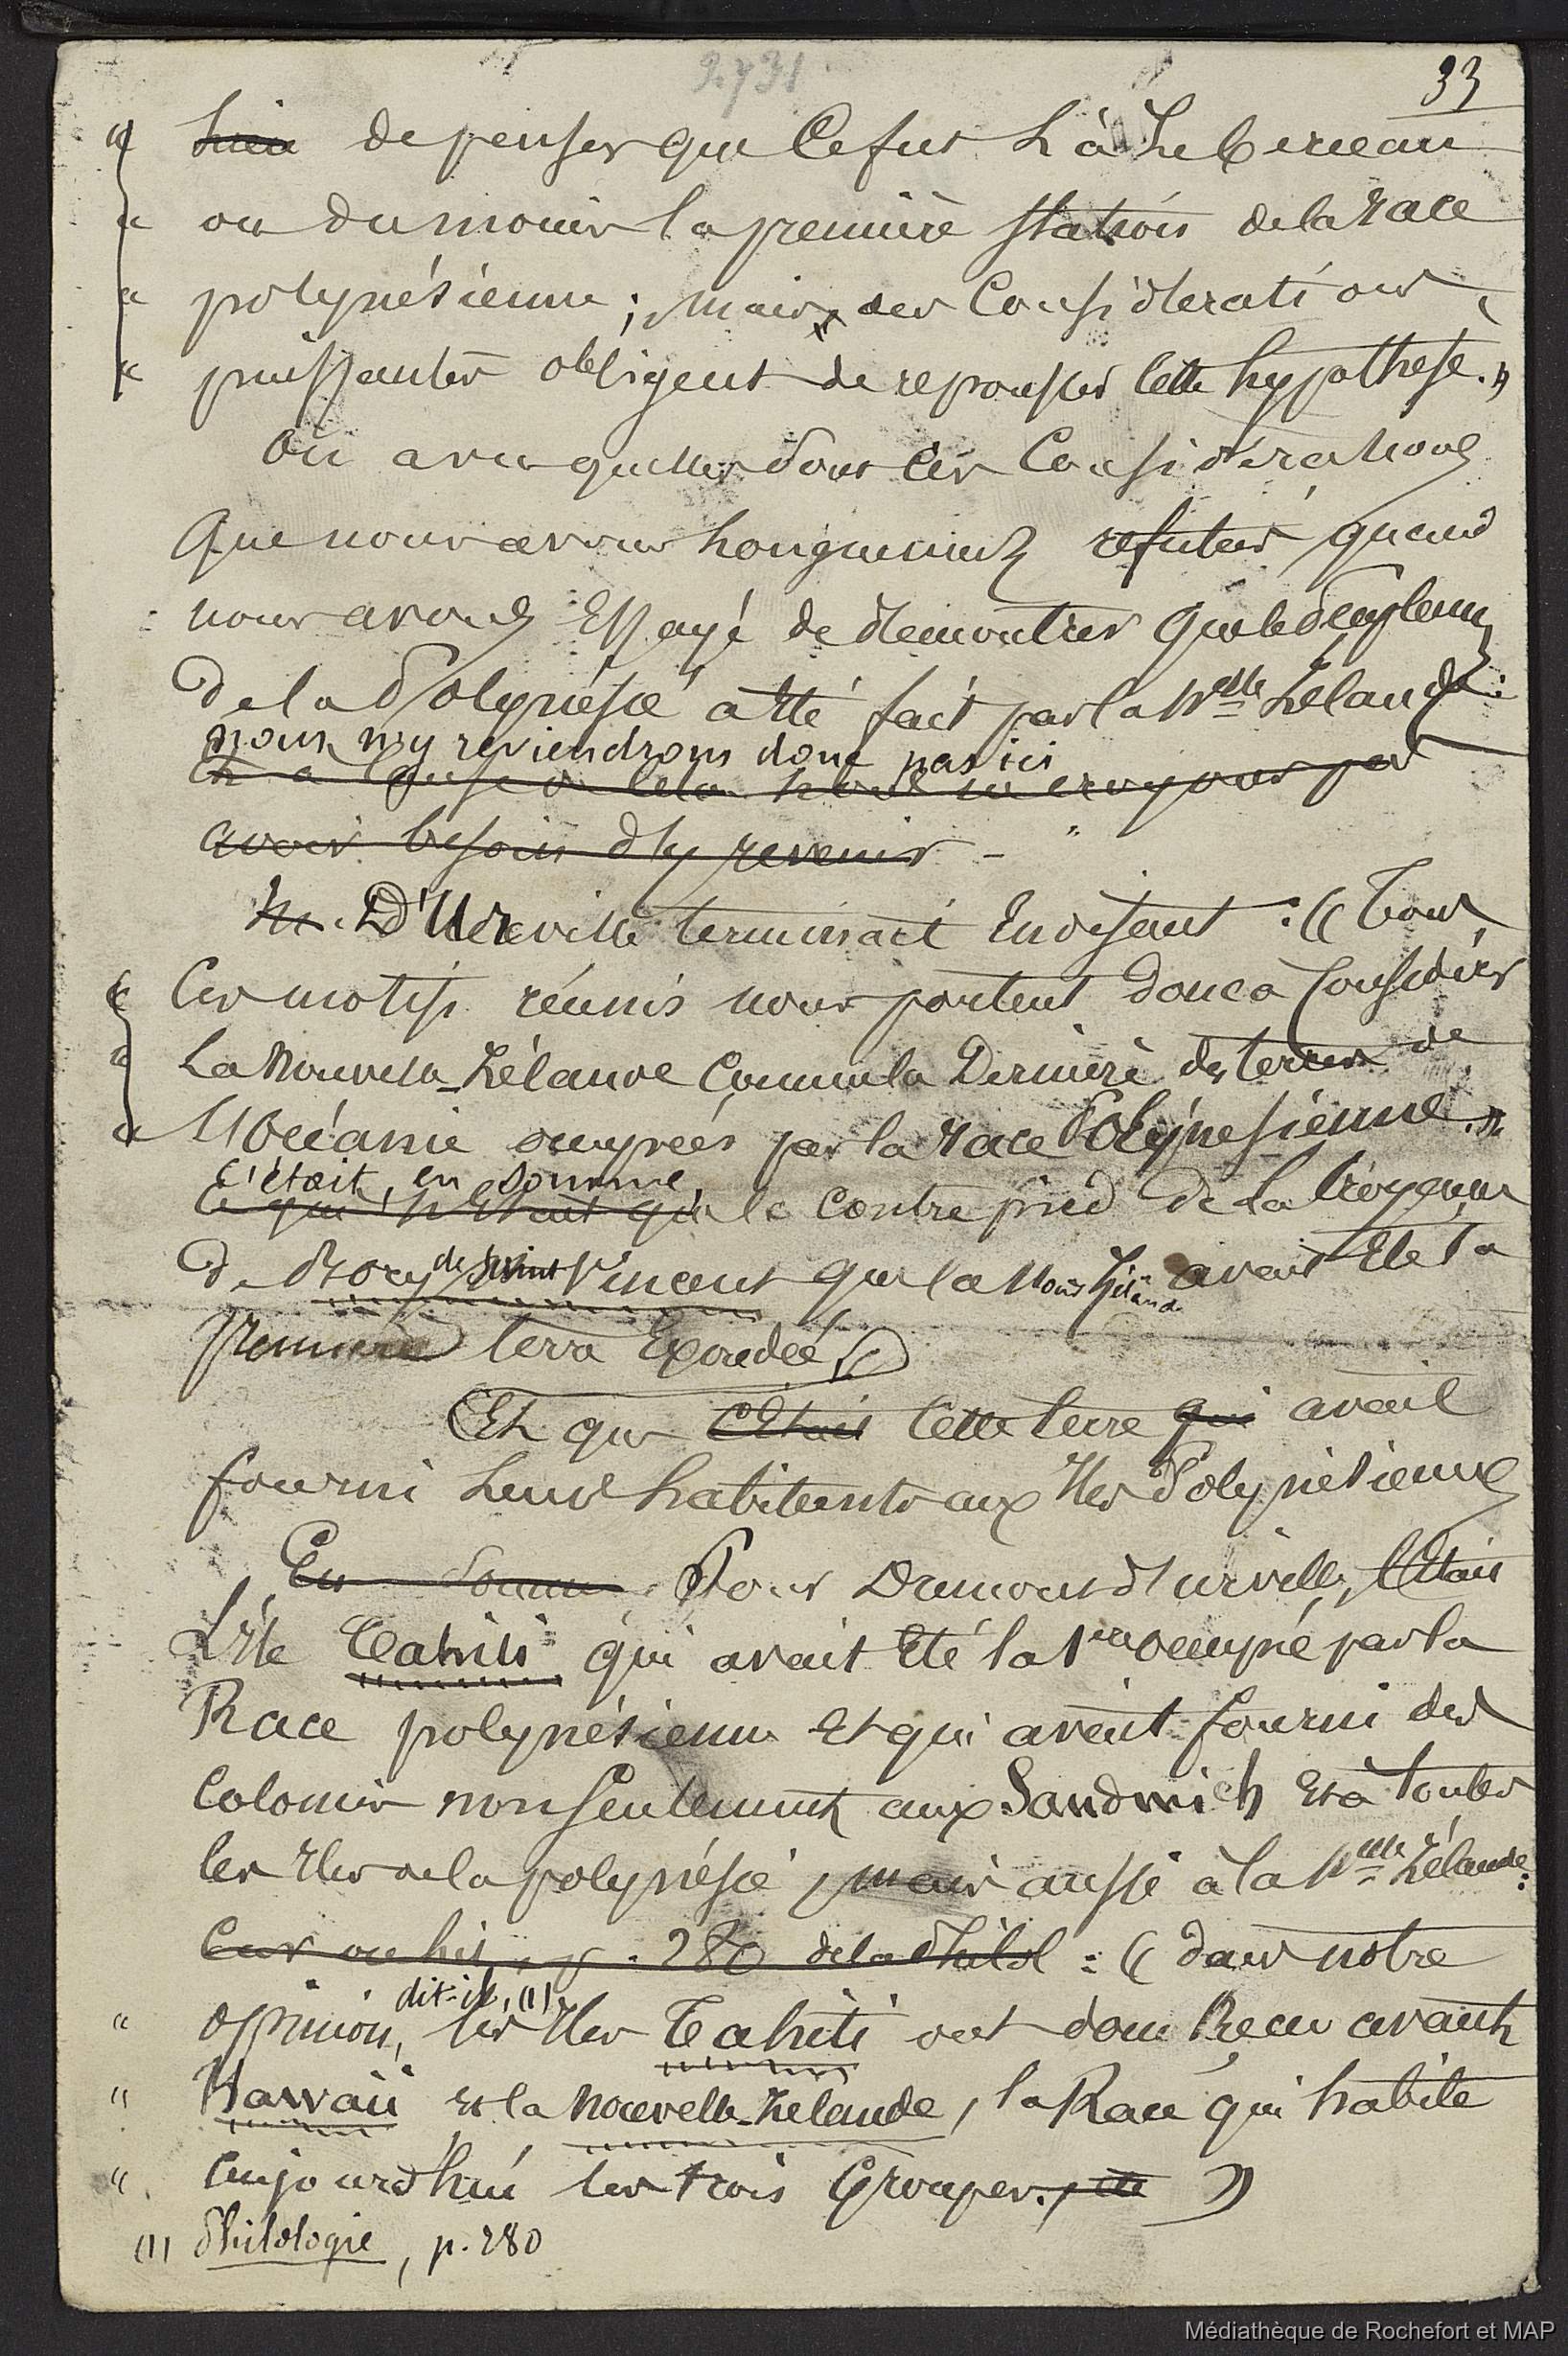 2731
33
" lieu de penser que ce fut là le berceau
" ou du moins la première station de la race
" polynésienne ; mais des considérations
" puissantes obligent de repousser cette hypothese. »
On a vu quelles sont ces considérations
que nous avons longuement refutées quand
nous avons essayé de démontrer que le
de la Polynésie a été fait par la Nelle Zélande.
nous n'y reviendrons donc pas ici
Et à cause de cela nous ne croyons pas
avoir besoin d'y revenir -
M. D'Urville terminait en disant : « Tous
" ces motifs réunis nous portent donc à considérer
" la Nouvelle-Zélande comme la dernière des terres de
" l'Océanie occupées par la race Polynésienne. »
C'était, en somme,
Ce qui n'était que le contre pied de la croyance
de Bory de Saint Vincent que la Nouv Zéland avait été la
première terre exondée,
Et que c'était cette terre qui avait
fourni leurs habitants aux Iles Polynésiennes
En somme, Pour Dumont d'urville, c'était
L'île Tahiti qui avait été la 1ère occupée par la
Race polynésienne et qui avait fourni des
colonies non seulement aux Sandwich et à toutes
les Iles de la polynésie, mais aussi à la Nelle Zélande:
Car on lit, p. 280 de la Philol : « dans notre
" opinion, dit-il, (1) les Iles Tahiti ont donc Reçu avant
" Hawaii et la Nouvelle-Zélande, la Race qui habite
" aujourd'hui les trois Groupes. »
(1) Philologie, p. 280
Médiathèque de Rochefort et MAP